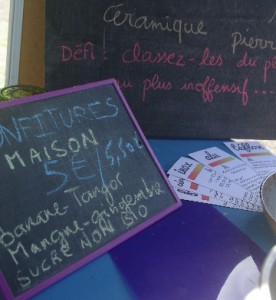 Céramique pierr
Défi : classez-les du pl
au plus inoffensif...
ONFITURES
MAISON
5€/5,50€
Banane Tangor
Mangue gingembre
SUCRE NON BIO
inox
alu
téflon